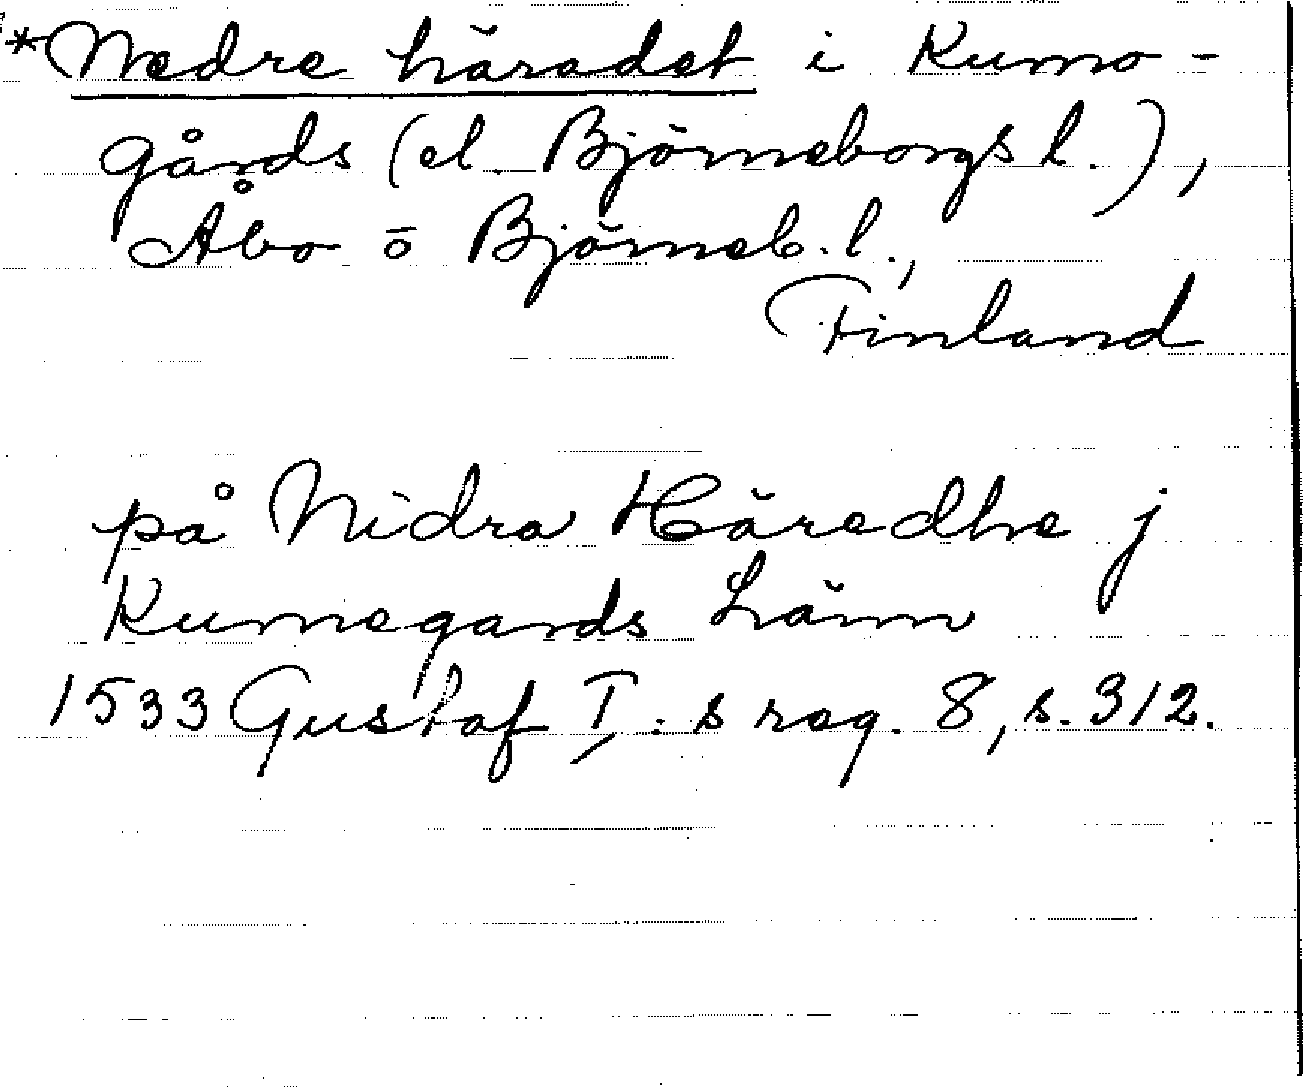 *Nedre häradet i Kumo-
gårds (el. Björneborgs l.),
Åbo o Björneb. l.,
Finland
på Nidra Häredhe j
Kumegards Länn
1533 Gustaf I:s reg. 8, s. 312.